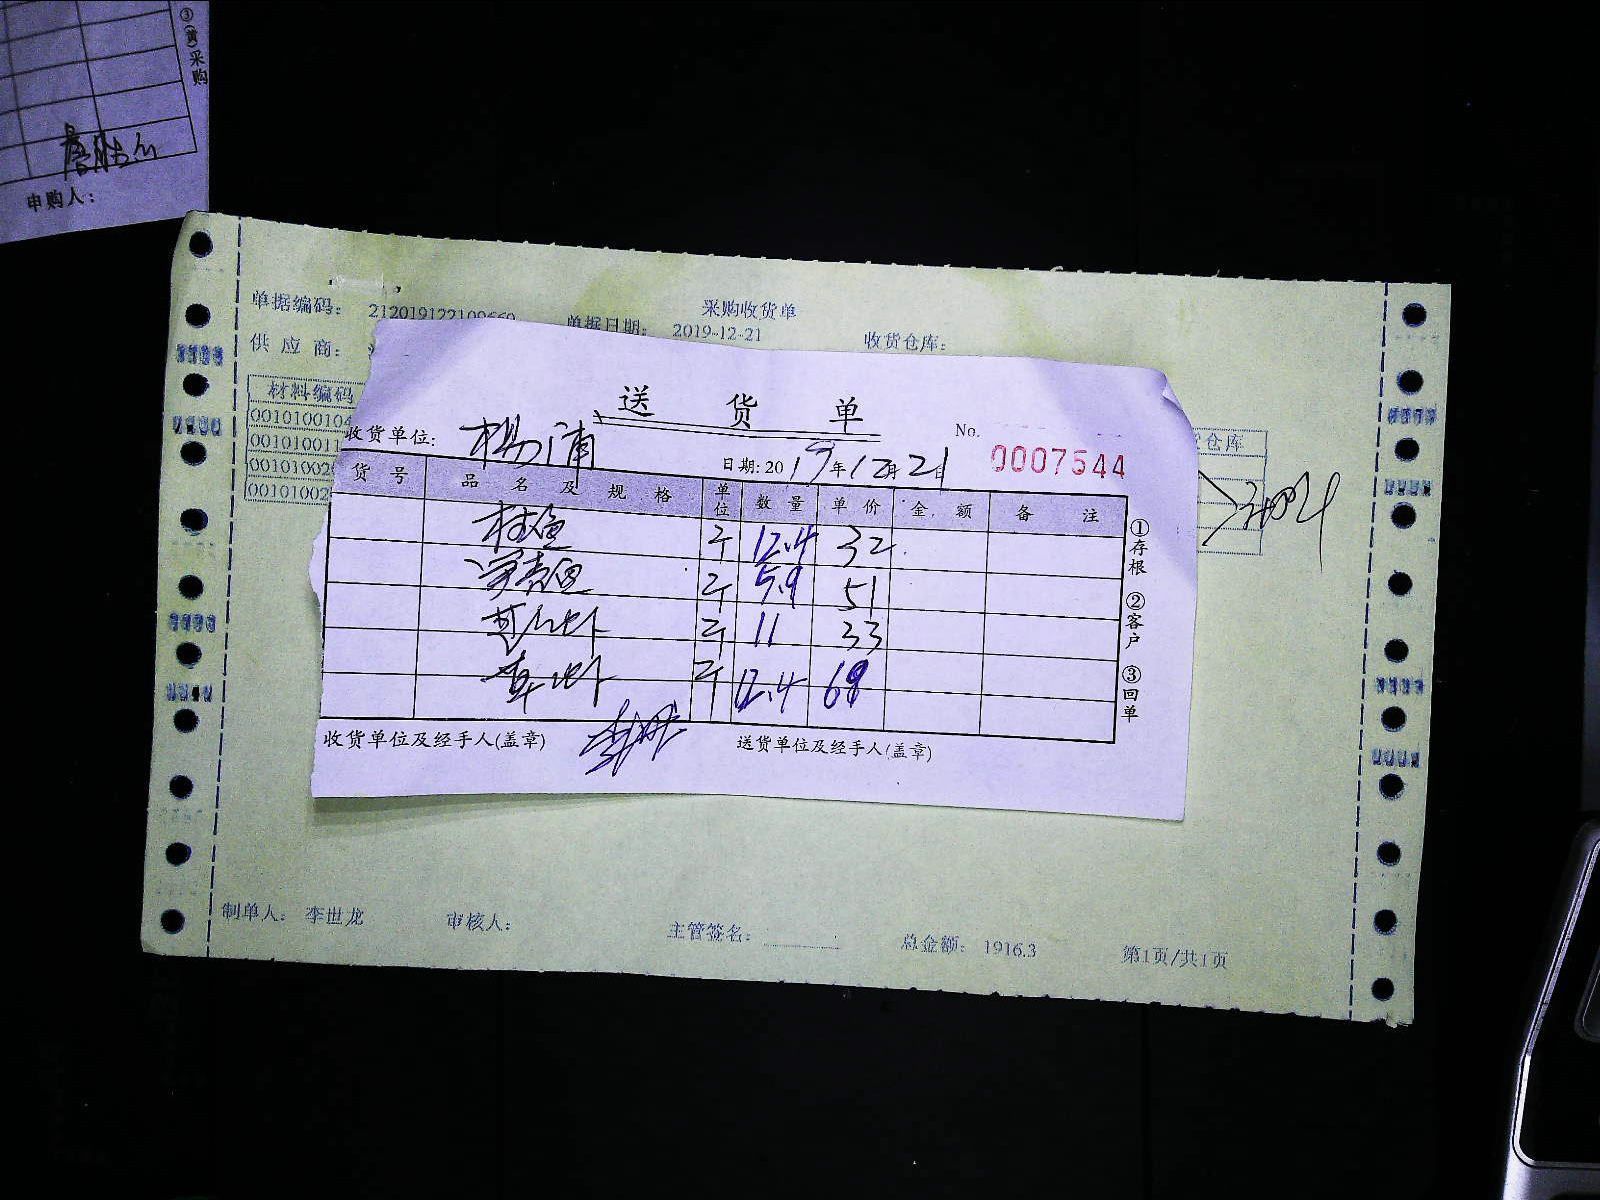 ③(黄)采购
申购人：
采购收货单
单据编码： 212019122109660 单据日期： 2019-12-21 收货仓库：
供应商：
材料编码 仓库
0010100104
001010011
001010020
00101002
送货单
收货单位: 杨浦 No. 0007544
日期: 2019年12月21日
货号 品名及规格 单位 数量 单价 金额 备注
桂鱼 斤 12.4 32
斤 5.9 51
斤 11 33
草虾 斤 12.4 68
①存根 ②客户 ③回单
收货单位及经手人(盖章) 送货单位及经手人(盖章)
制单人： 李世龙 审核人： 主管签名： 总金额： 1916.3 第1页/共1页